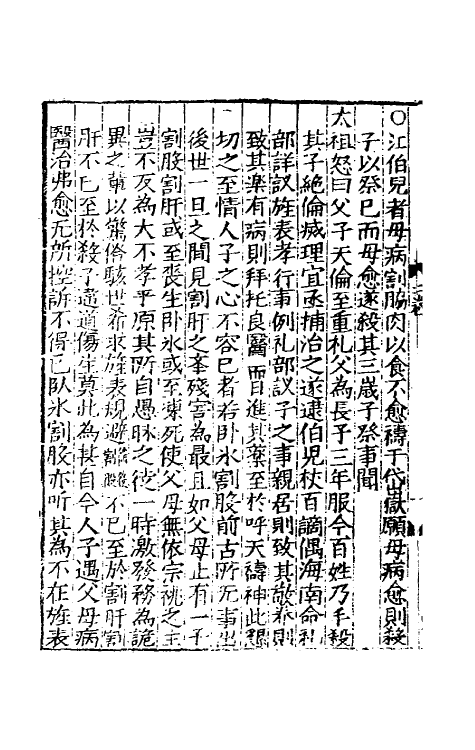 〇江伯兒者母病割脇肉以食不愈禱于岱嶽願母病愈則殺
子以祭已而母愈遂殺其三歲子祭事聞
太祖怒曰父子天倫至重礼父為長子三年服今百姓乃手殺
其子絶倫滅理宜亟捕治之遂逮伯兒杖百謫偶海南命礼
部詳議旌表孝行事例礼部議子之事親居則致其敬養則
致其楽有病則拜托良醫甞進其藥至於呼天禱神此懇
切之至情人子之心不容已者若卧氷割股前古所无事出
後世一旦之間見割肝之舉殘害為最且如父母止有一子
割股割肝或至喪生卧氷或至凍死使父母無依宗祧之主
豈不反為大不孝乎原其所自愚昧之徒一時激發務為詭
異之事以驚俗駭世希求旌表規避割股不已至於割肝割
肝不已至於殺子違道傷生莫此為甚自今人子遇父母病
醫治弗愈无所控訴不得已臥氷割股亦听其為不在旌表